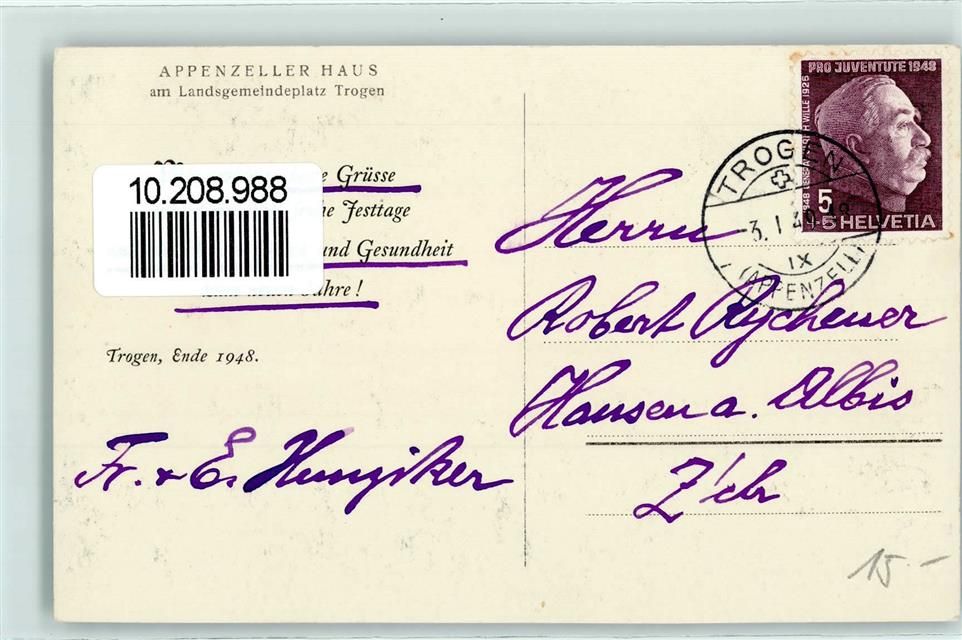 APPENZELLER HAUS
am Landsgemeindeplatz Trogen
10.208.988
Grüsse
Festtage
und Gesundheit
Jahre!
Trogen, Ende 1948.
Fr. & E. Hunziker
PRO JUVENTUTE 1948
5
+5 HELVETIA
TROGEN
3. I. 49
IX
(APPENZELL)
Herrn
Robert Rychener
Hausen a. Albis
Z'ch
15.-